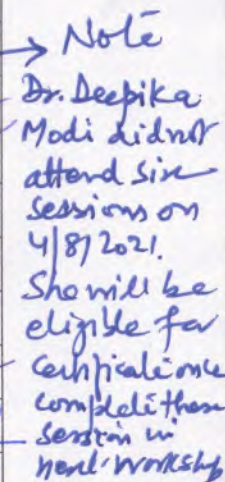 Note
Dr. Deepika
Modi did not
attend six
sessions on
4/8/2021.
She will be
eligible for
certificate once
complete these
session in
next workshop